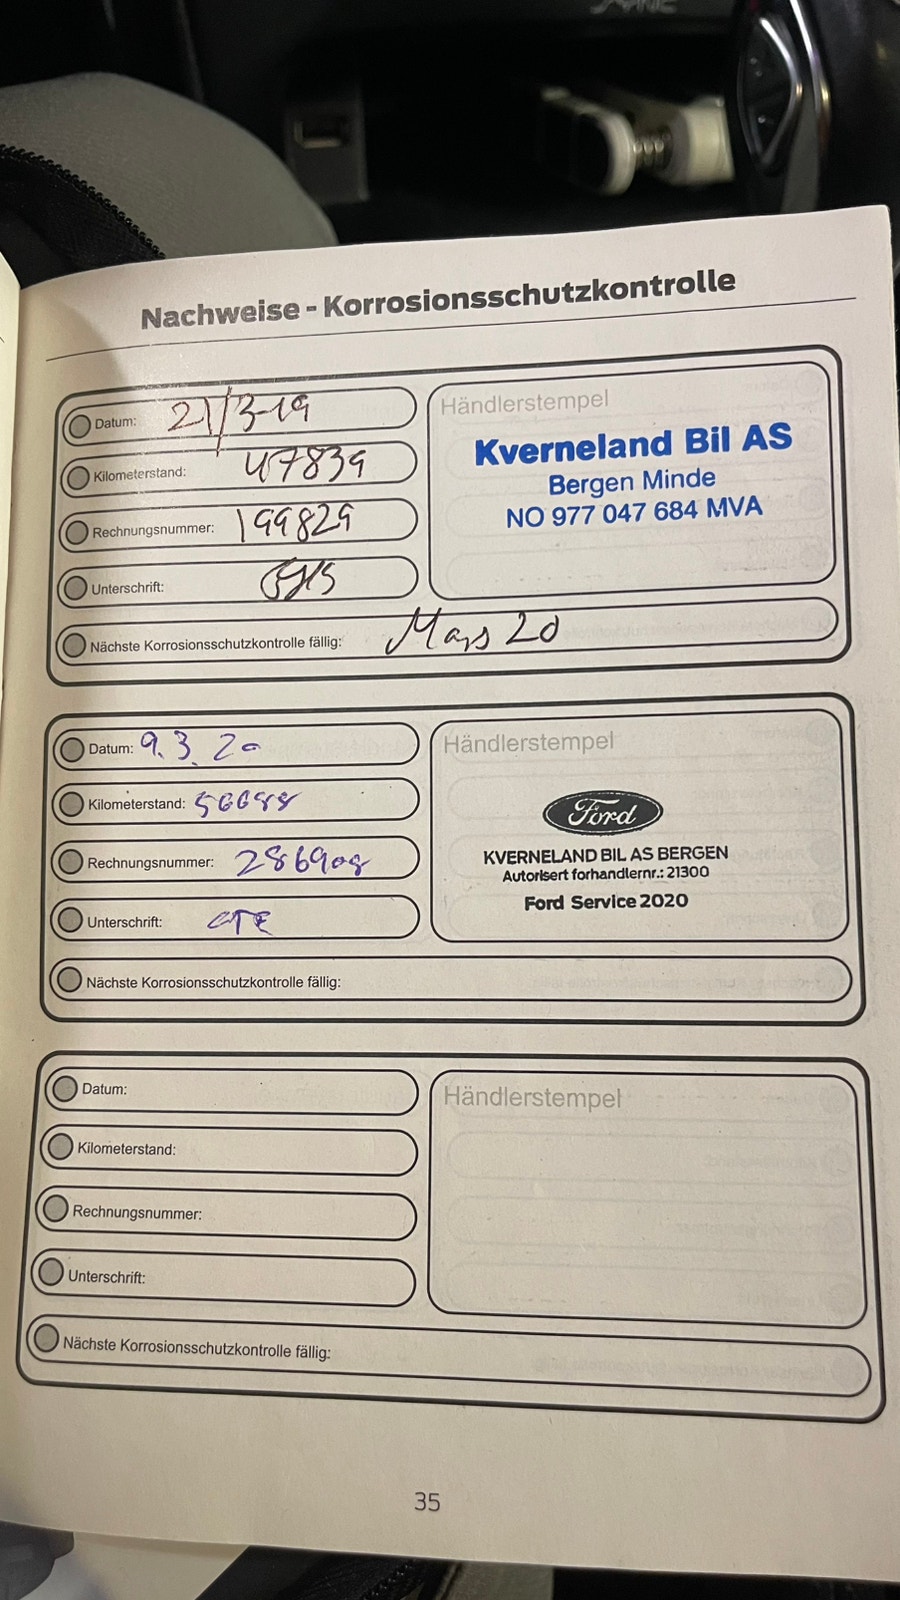 Nachweise - Korrosionsschutzkontrolle
Datum: 21/3-19
Kilometerstand: 47839
Rechnungsnummer: 199829
Unterschrift:
Nächste Korrosionsschutzkontrolle fällig: Mars 20
Händlerstempel
Kverneland Bil AS
Bergen Minde
NO 977 047 684 MVA
Datum: 9.3.20
Kilometerstand: 56688
Rechnungsnummer: 286908
Unterschrift: CTE
Nächste Korrosionsschutzkontrolle fällig:
Händlerstempel
Ford
KVERNELAND BIL AS BERGEN
Autorisert forhandlernr.: 21300
Ford Service 2020
Datum:
Kilometerstand:
Rechnungsnummer:
Unterschrift:
Nächste Korrosionsschutzkontrolle fällig:
Händlerstempel
35